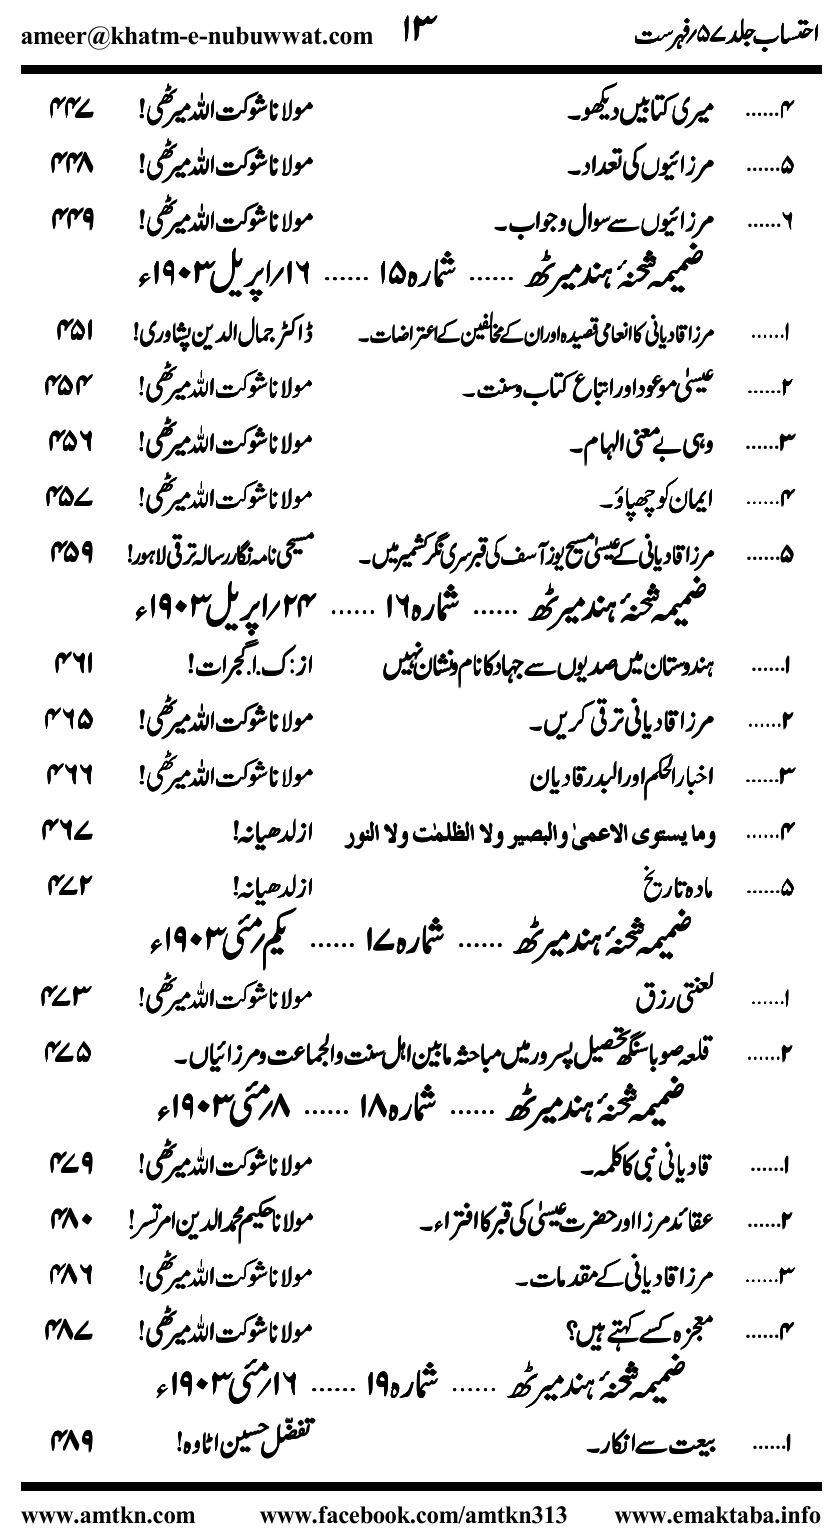 احتساب جلد ۵۷؍فہرست ۱۳ ameer@khatm-e-nubuwwat.com
۴...... میری کتابیں دیکھو۔ مولانا شوکت اللہ میرٹھی! ۴۴۷
۵...... مرزائیوں کی تعداد۔ مولانا شوکت اللہ میرٹھی! ۴۴۸
۶...... مرزائیوں سے سوال وجواب۔ مولانا شوکت اللہ میرٹھی! ۴۴۹
ضمیمہ شحنۂ ہند میرٹھ ...... شمارہ ۱۵ ...... ۱۶؍اپریل ۱۹۰۳ء
۱...... مرزا قادیانی کا انعامی قصیدہ اور ان کے مخالفین کے اعتراضات۔ ڈاکٹر جمال الدین پشاوری! ۴۵۱
۲...... عیسیٰ موعود اور اتباع کتاب وسنت۔ مولانا شوکت اللہ میرٹھی! ۴۵۴
۳...... وہی بے معنی الہام۔ مولانا شوکت اللہ میرٹھی! ۴۵۶
۴...... ایمان کو چھپاؤ۔ مولانا شوکت اللہ میرٹھی! ۴۵۷
۵...... مرزا قادیانی کے عیسیٰ مسیح یوز آسف کی قبر سری نگر کشمیر میں۔ مسیحی نامہ نگار رسالہ ترقی لاہور! ۴۵۹
ضمیمہ شحنۂ ہند میرٹھ ...... شمارہ ۱۶ ...... ۲۴؍اپریل ۱۹۰۳ء
۱...... ہندوستان میں صدیوں سے جہاد کا نام ونشان نہیں از: ک.ا.گجرات! ۴۶۱
۲...... مرزا قادیانی ترقی کریں۔ مولانا شوکت اللہ میرٹھی! ۴۶۵
۳...... اخبار الحکم اور البدر قادیان مولانا شوکت اللہ میرٹھی! ۴۶۶
۴...... وما یستوی الاعمیٰ والبصیر ولا الظلمٰت ولا النور از لدھیانہ! ۴۶۷
۵...... مادہ تاریخ از لدھیانہ! ۴۷۲
ضمیمہ شحنۂ ہند میرٹھ ...... شمارہ ۱۷ ...... یکم؍مئی ۱۹۰۳ء
۱...... لعنتی رزق مولانا شوکت اللہ میرٹھی! ۴۷۳
۲...... قلعہ صوبا سنگھ تحصیل پسرور میں مباحثہ مابین اہل سنت والجماعت ومرزائیاں۔ ۴۷۵
ضمیمہ شحنۂ ہند میرٹھ ...... شمارہ ۱۸ ...... ۸؍مئی ۱۹۰۳ء
۱...... قادیانی نبی کا کلمہ۔ مولانا شوکت اللہ میرٹھی! ۴۷۹
۲...... عقائد مرزا اور حضرت عیسیٰ کی قبر کا افتراء۔ مولانا حکیم محمد الدین امرتسر! ۴۸۰
۳...... مرزا قادیانی کے مقدمات۔ مولانا شوکت اللہ میرٹھی! ۴۸۶
۴...... معجزہ کسے کہتے ہیں؟ مولانا شوکت اللہ میرٹھی! ۴۸۷
ضمیمہ شحنۂ ہند میرٹھ ...... شمارہ ۱۹ ...... ۱۶؍مئی ۱۹۰۳ء
۱...... بیعت سے انکار۔ تفضّل حسین اٹاوہ! ۴۸۹
www.amtkn.com www.facebook.com/amtkn313 www.emaktaba.info